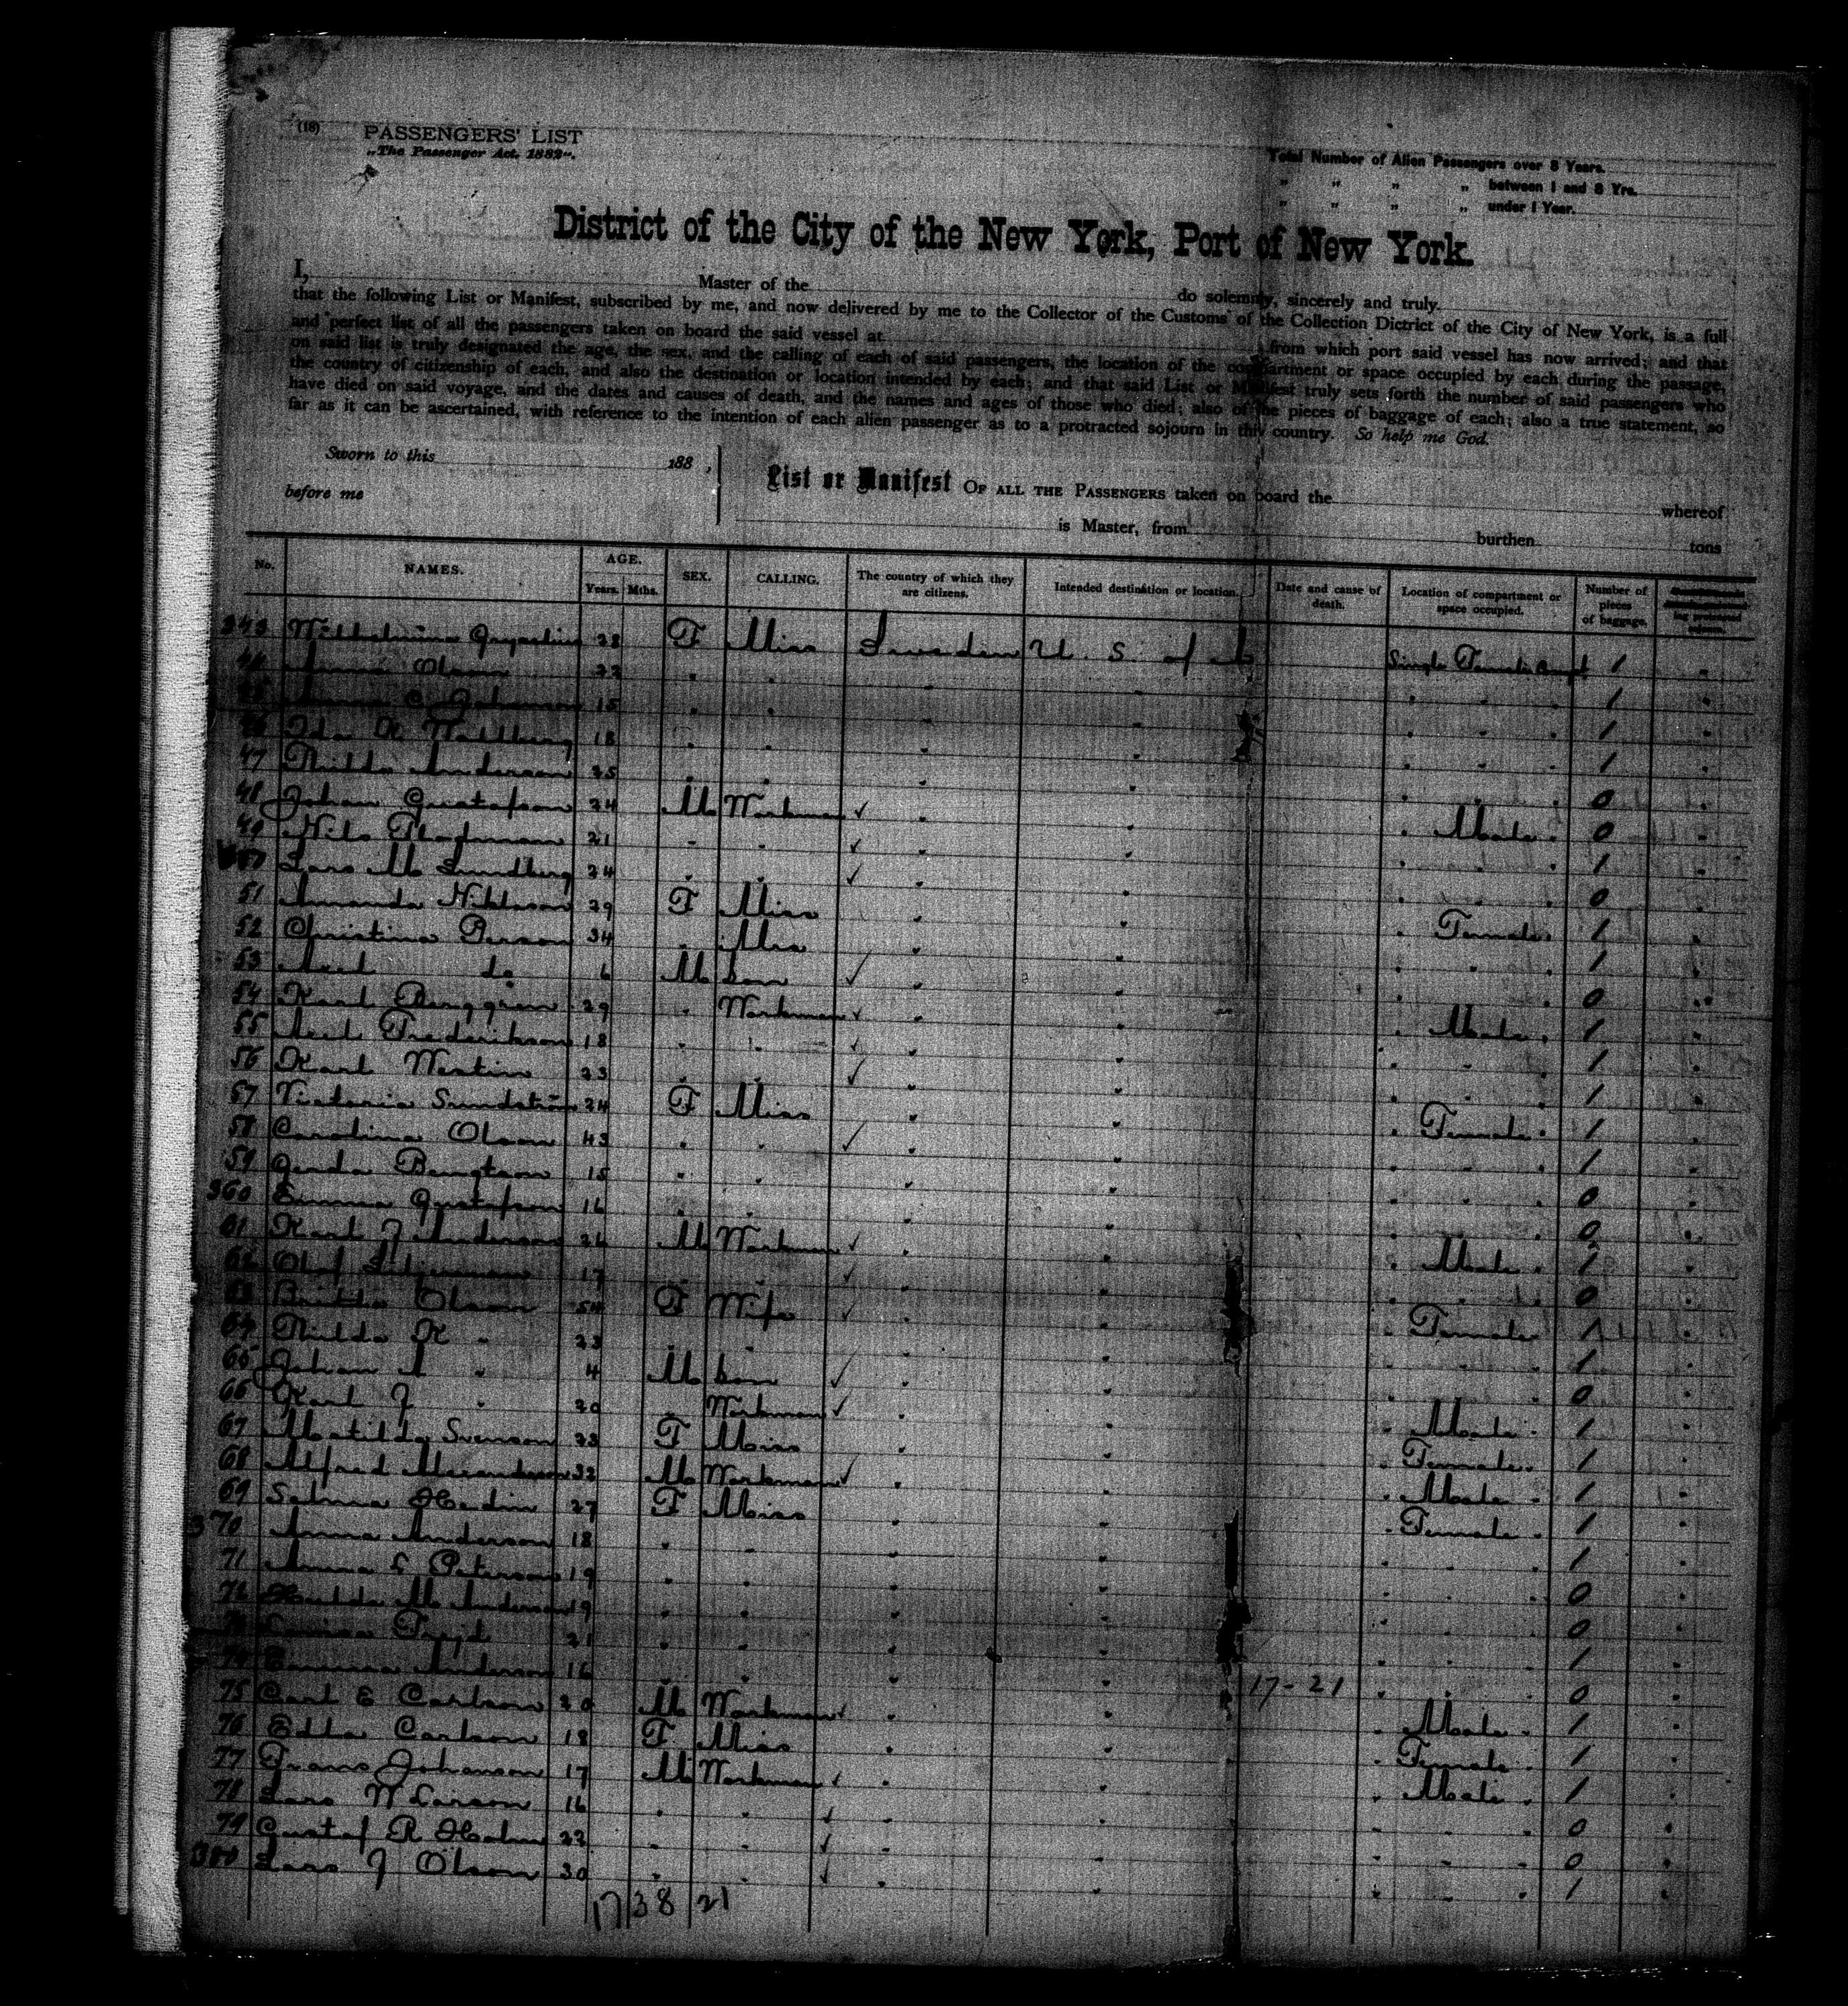 (18) PASSENGERS' LIST
„The Passenger Act. 1882".
Total Number of Alien Passengers over 8 Years.
„ „ „ „ between 1 and 8 Yrs.
„ „ „ „ under 1 Year.
District of the City of the New York, Port of New York.
I, Master of the do solemnly, sincerely and truly
that the following List or Manifest, subscribed by me, and now delivered by me to the Collector of the Customs of the Collection Dictrict of the City of New York, is a full
and perfect list of all the passengers taken on board the said vessel at from which port said vessel has now arrived; and that
on said list is truly designated the age, the sex, and the calling of each of said passengers, the location of the compartment or space occupied by each during the passage,
the country of citizenship of each, and also the destination or location intended by each; and that said List or Manifest truly sets forth the number of said passengers who
have died on said voyage, and the dates and causes of death, and the names and ages of those who died; also of the pieces of baggage of each; also a true statement, so
far as it can be ascertained, with reference to the intention of each alien passenger as to a protracted sojourn in this country. So help me God.
Sworn to this 188 ,
before me
List or Manifest OF ALL THE PASSENGERS taken on board the whereof
is Master, from burthen tons
No. NAMES. AGE. Years. Mths. SEX. CALLING. The country of which they are citizens. Intended destination or location. Date and cause of death. Location of compartment or space occupied. Number of pieces of baggage.
343 Wilhelmina 28 F Miss Sweden U. S. of A Single Female Compt 1
44 Anna Olson 22 " " " " 1
45 Anna C Johanson 15 " " " " 1
46 Ida K Wallberg 18 " " " " 1
47 Thilda Anderson 25 " " " " 0
48 Johan Gustafson 24 M Workman " " Male 0
49 Nils 21 " " " " 1
350 Lars M Lundberg 24 " " " " 0
51 Amanda Niklason 29 F Miss " " Female 1
52 Christina Person 34 " Mrs " " 1
53 Axel do 6 M Son " " 0
54 Karl Berggren 29 " Workman " " Male 1
55 Axel Frederikson 18 " " " " 1
56 Karl Westin 23 " " " " 1
57 Victoria Sundström 24 F Miss " " Female 1
58 Carolina Olson 43 " " " " 1
59 Gerda Bengtson 15 " " " " 0
360 Emma Gustafson 16 " " " " 0
61 Karl J Anderson 26 M Workman " " Male 1
62 Olof 17 " " " " 0
63 Britta Olson 54 F Wife " " Female 1
64 Thilda K " 23 " " " 1
65 Johan A " 4 M Son " " 0
66 Karl J " 20 " Workman " " Male 1
67 Matilda Svenson 23 F Miss " " Female 1
68 Alfred Alexanderson 32 M Workman " " Male 1
69 Selma Hedin 27 F Miss " " Female 1
370 Anna Anderson 18 " " " " 1
71 Anna L Peterson 19 " " " " 0
72 Hulda M Anderson 19 " " " " 0
73 Lovisa Frejd 21 " " " " 1
74 Emma Anderson 16 " " " " 17-21 0
75 Carl E Carlson 20 M Workman " " Male 1
76 Edla Carlson 18 F Miss " " Female 1
77 Frans Johanson 17 M Workman " " Male 1
78 Lars W Larson 16 " " " " 0
79 Gustaf R Holm 22 " " " " 0
380 Lars J Olson 30 " " " " 1
17 38 21